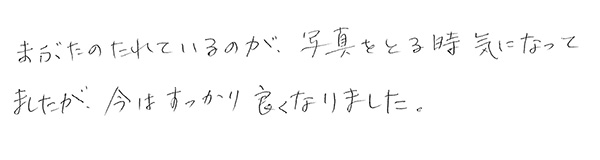 まぶたのたれているのが、写真をとる時気になって
ましたが、今はすっかり良くなりました。